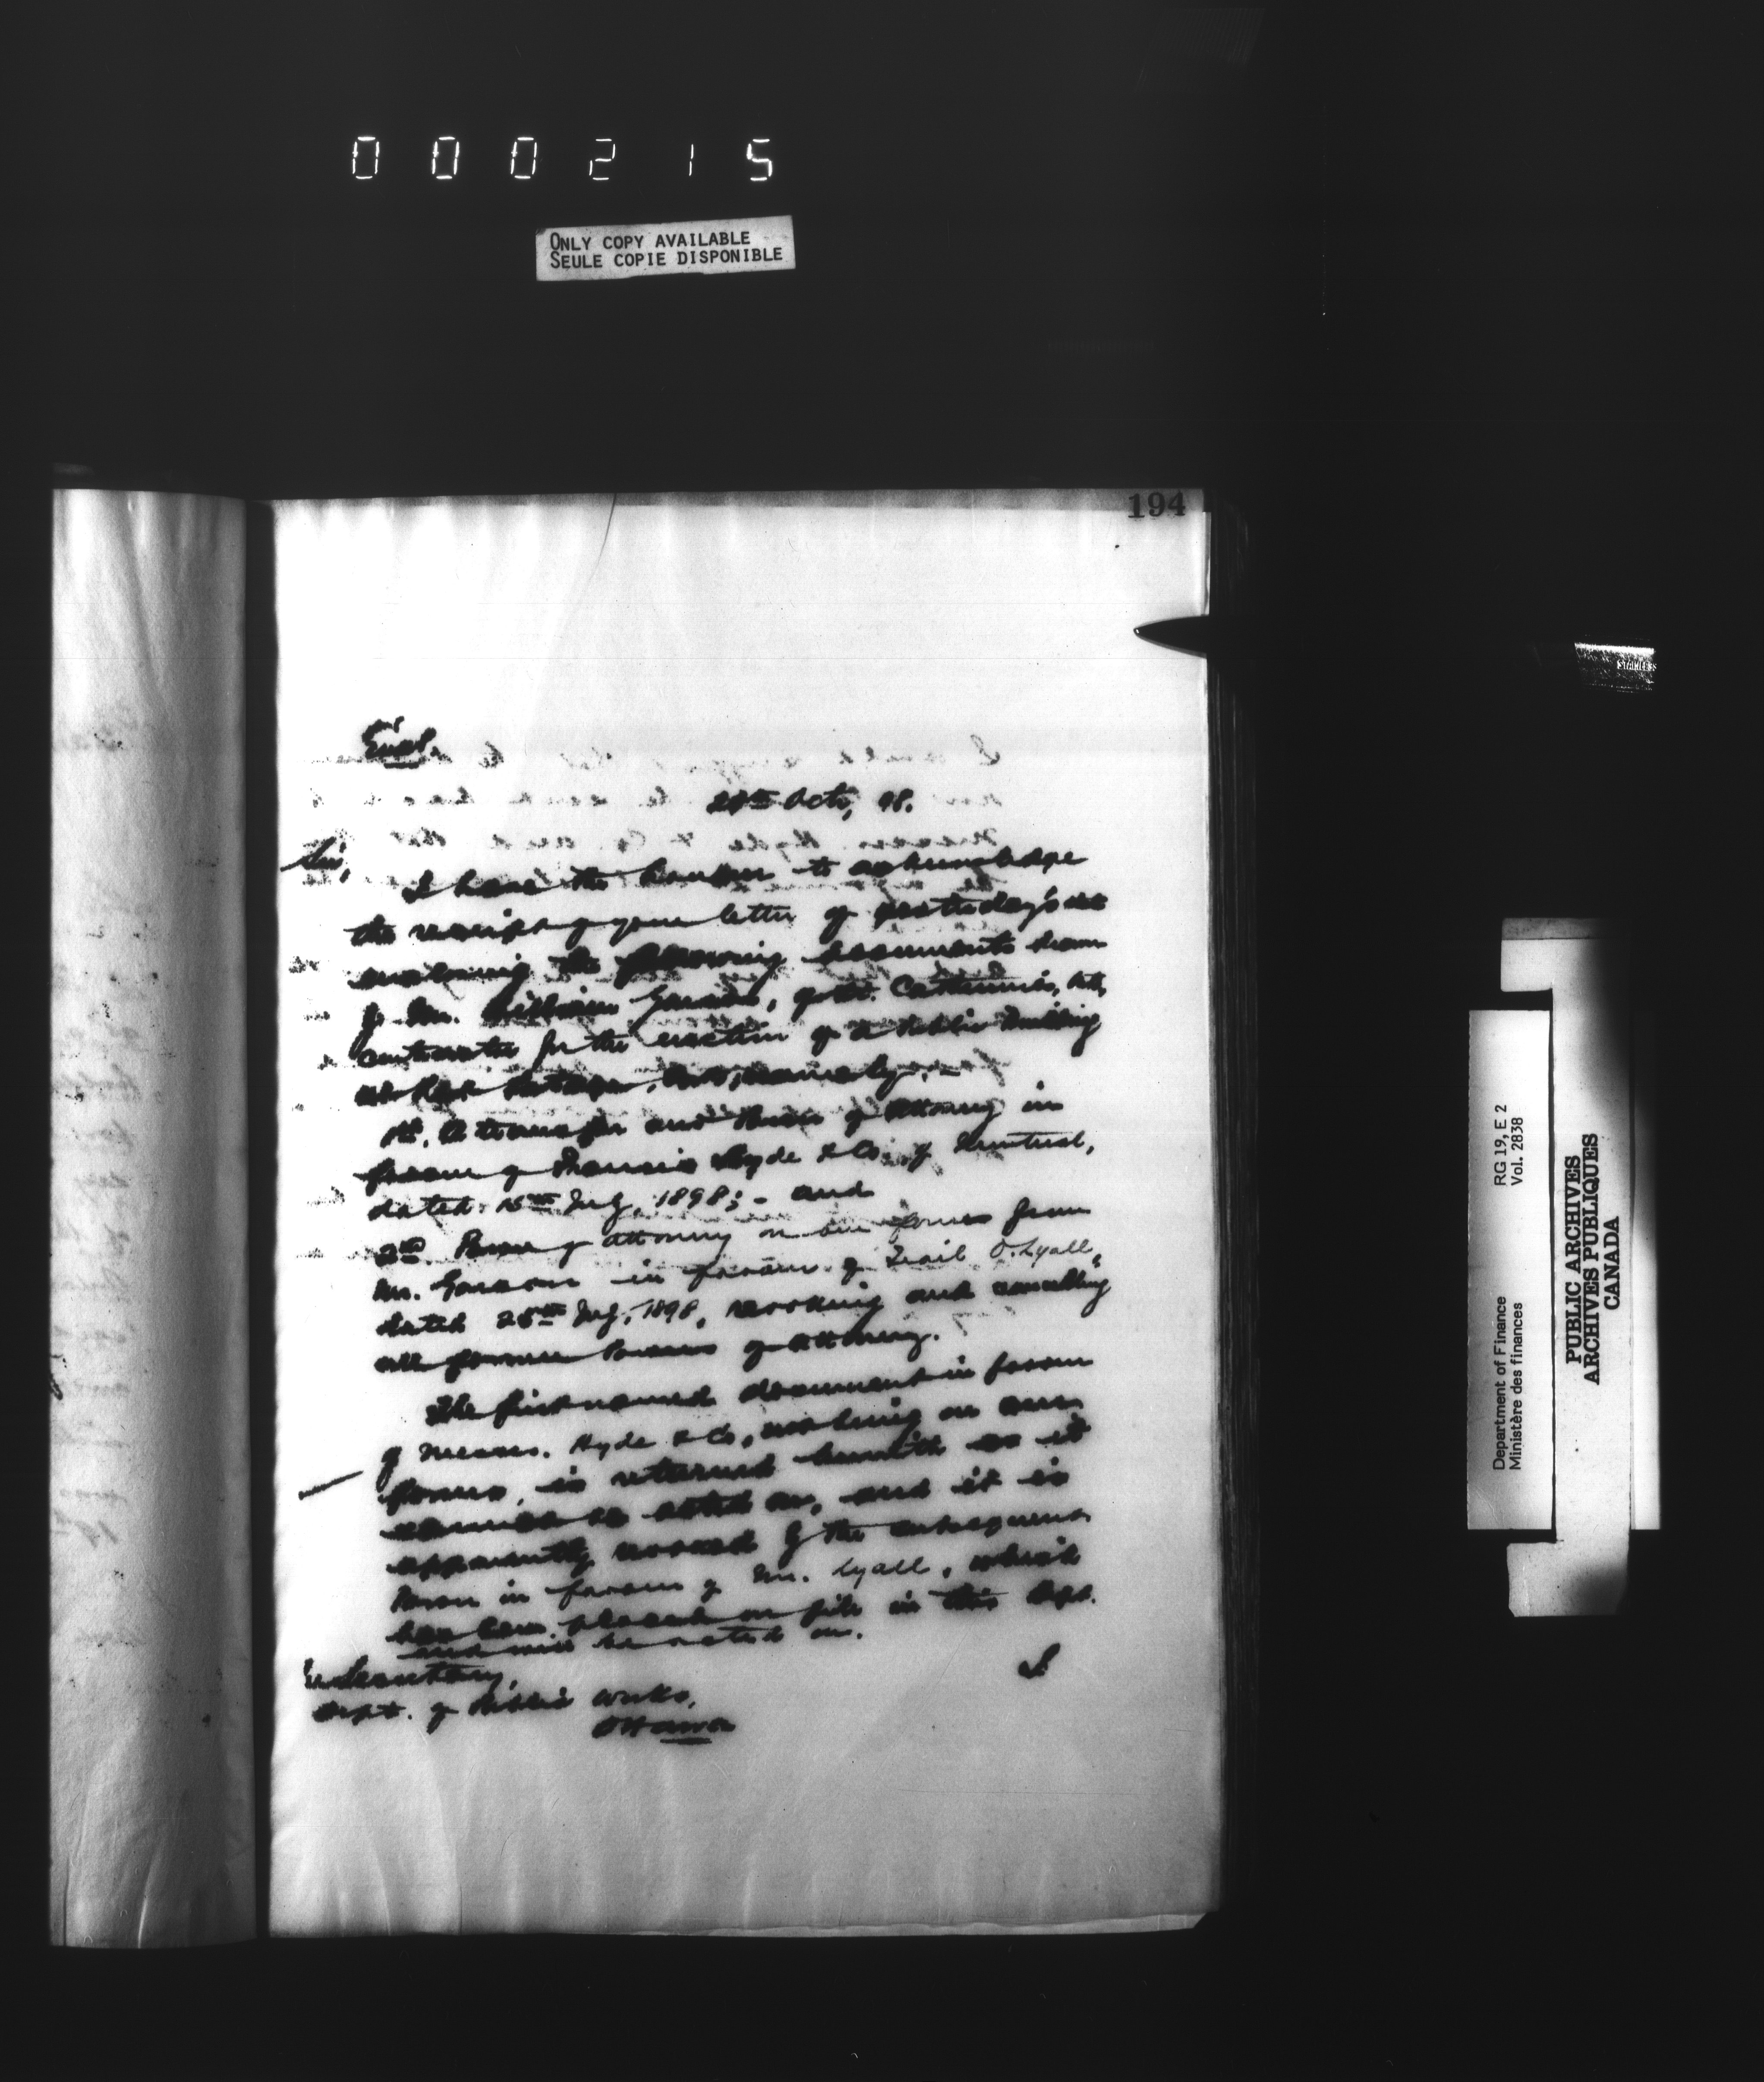 000215
ONLY COPY AVAILABLE
SEULE COPIE DISPONIBLE
194
Encl.
Octr, 98.
Sir,
I have the honour to acknowledge
the receipt of your letter of yesterday's
enclosing the following documents
Mr. William Garson, of St. Catharines, Ont,
contractor for the erection of a Public Building
at Rat Portage, Ont., namely: -
1st. A transfer and Power of Attorney in
favour of Francis Hyde & Co. of Montreal,
dated 15th July, 1898; - and
2nd. Power of attorney on our forms from
Mr. Garson in favour of O. Lyall,
dated July, 1898, revoking and cancelling
all former Powers of Attorney.
The first named document in favour
of Messrs. Hyde & Co, not being on our
forms, is returned herewith as it
cannot be acted on, and it is
apparently revoked by the subsequent
Power in favour of Mr. Lyall, which
has been placed on file in this Dept.
and will be acted on.
Secretary,
Dept. of Public Works,
Ottawa
RG 19, E 2
Vol. 2838
Department of Finance
Ministère des finances
PUBLIC ARCHIVES
ARCHIVES PUBLIQUES
CANADA